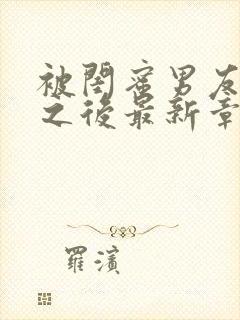 被閨蜜男友
之後最新章
羅濱